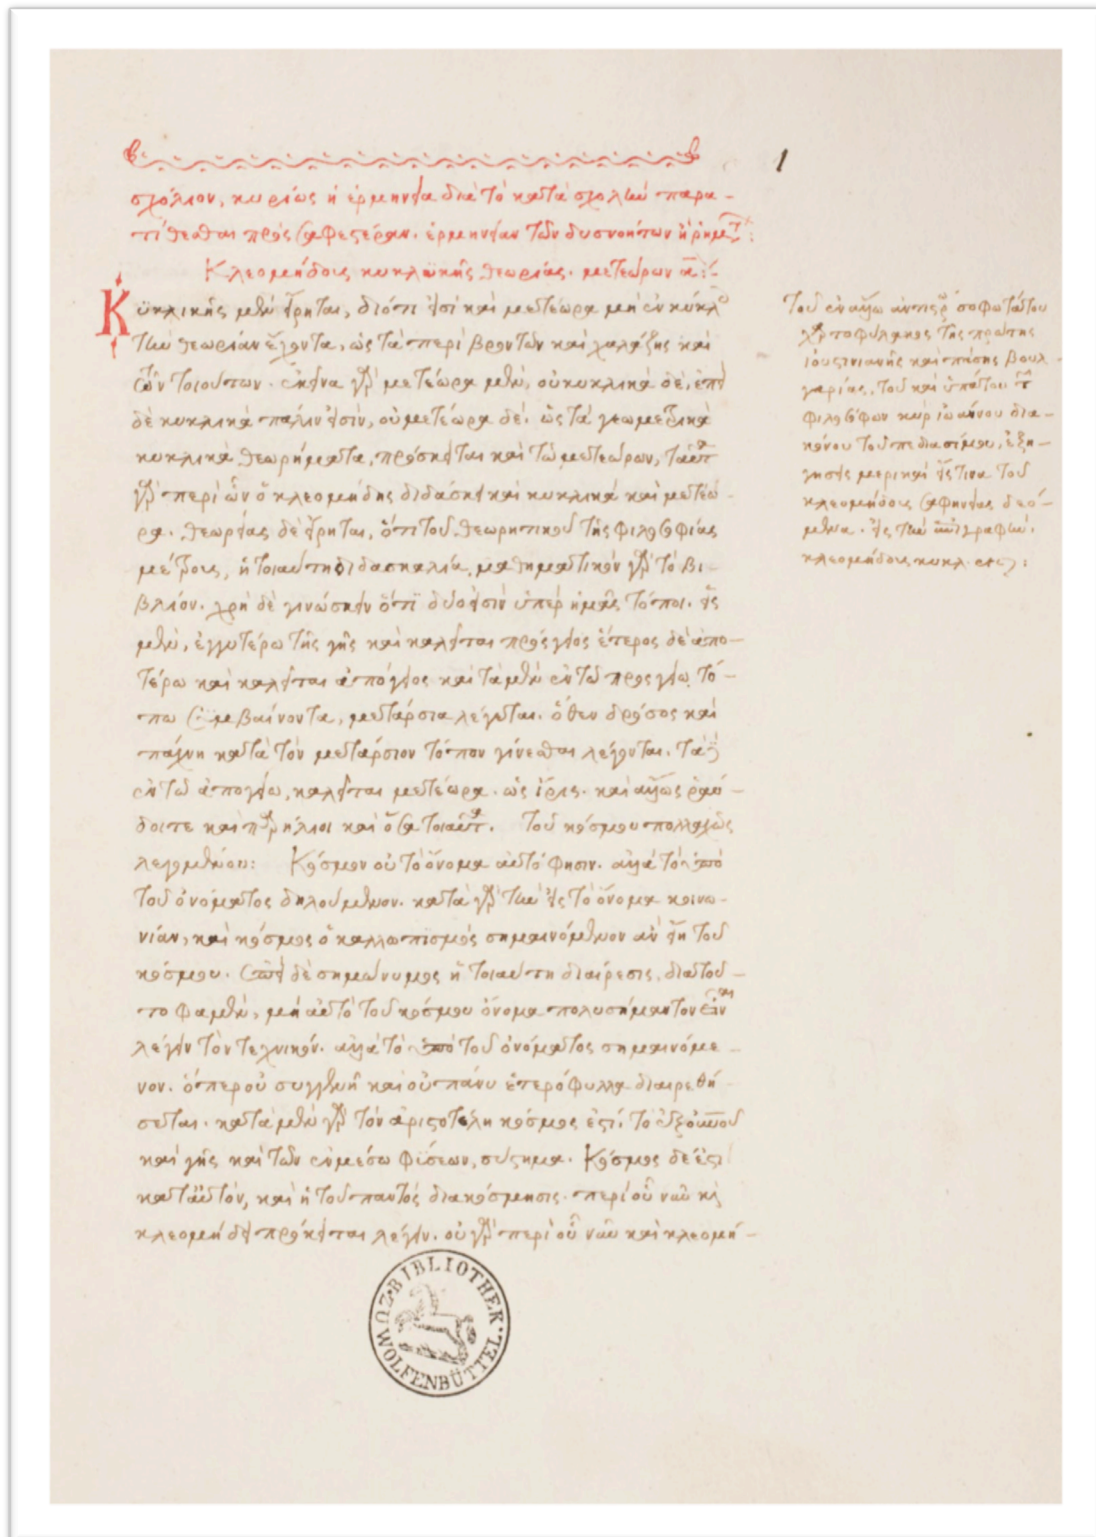 σχόλιον, κυρίως ἡ ἑρμηνεία διὰ τὸ κατὰ σχολὴν παρα-
τίθεσθαι πρὸς σαφεστέραν. ἑρμηνείαν τῶν δυσνοήτων ἢ ῥημάτ:
Κλεομήδους κυκλικῆς θεωρίας. μετεώρων α:
Κυκλικῆς μὲν εἴρηται, διότι εἰσὶ καὶ μετέωρα μὴ ἐν κύκλο
τὴν θεωρίαν ἔχοντα, ὡς τὰ περὶ βροντῶν καὶ χαλάζης καὶ
τῶν τοιούτων. ἐκεῖνα γὰρ μετέωρα μὲν, οὐ κυκλικὰ δὲ, ἐπεὶ
δὲ κυκλικὰ πάλιν εἰσὶν, οὐ μετέωρα δὲ. ὡς τὰ γεωμετρικὰ
κυκλικὰ θεωρήματα, πρόσκειται καὶ τῶ μετεώρων, ταῦτα
γὰρ περὶ ὧν ὁ κλεομήδης διδάσκει καὶ κυκλικὰ καὶ μετέω-
ρα. θεωρίας δὲ εἴρηται, ὅτι τοῦ θεωρητικοῦ τῆς φιλοσοφίας
μέρους, ἡ τοιαύτη διδασκαλία, μαθηματικὸν γὰρ τὸ βι-
βλίον. χρὴ δὲ γινώσκειν ὅτι δύο εἰσὶν ὑπὲρ ἡμᾶς τόποι. εἷς
μὲν, ἐγγυτέρω τῆς γῆς καὶ καλεῖται πρόσγειος ἕτερος δὲ ἀπο-
τέρω καὶ καλεῖται ἀπόγειος καὶ τὰ μὲν ἐν τῶ προσγείω τό-
πω συμβαίνοντα, μετάρσια λέγεται. ὅθεν δρόσος καὶ
πάχνη κατὰ τὸν μετάρσιον τόπον γίνεσθαι λέγονται. τὰ δ
ἐν τῶ ἀπογείω, καλεῖται μετέωρα. ὡς ἶρις. καὶ ἅλως ῥάβ-
δοι τε καὶ παρήλιοι καὶ ὅσα τοιαῦτα. Τοῦ κόσμου πολλαχῶς
λεγομένου: Κόσμον οὐ τὸ ὄνομα αὐτό φησιν. ἀλλὰ τὸ ὑπὸ
τοῦ ὀνόματος δηλούμενον. κατὰ γὰρ τὴν εἰς τὸ ὄνομα κοινω-
νίαν, καὶ κόσμος ὁ καλλωπισμὸς σημαινόμενον ἂν εἴη τοῦ
κόσμου. δὲ σημώνυμος ἡ τοιαύτη διαίρεσις, διὰ τοῦ-
το φαμὲν, μὴ αὐτὸ τοῦ κόσμου ὄνομα πολυσήμαντον εἶναι
λέγειν τὸν τεχνικόν. ἀλλὰ τὸ ὑπὸ τοῦ ὀνόματος σημαινόμε-
νον. ὅπερ οὐ συγγενῆ καὶ οὐ πάνυ ἑτερόφυλλα διαιρεθή-
σεται. κατὰ μὲν γὰρ τὸν ἀριστοτέλη κόσμος ἐστὶ, τὸ ἐξ οὐρανοῦ
καὶ γῆς καὶ τῶν ἐν μέσω φύσεων, σύστημα. Κόσμος δὲ ἐστι
κατ αὐτὸν, καὶ ἡ τοῦ παντὸς διακόσμησις. περὶ οὗ νῦν καὶ
κλεομήδει πρόκειται λέγειν. οὐ γὰρ περὶ οὗ νῦν καὶ κλεομή-
1
Τοῦ ἐν σοφωτάτου
χαρτοφύλακος τῆς πρώτης
ἰουστινιανῆς καὶ πάσης βουλ-
γαρίας, τοῦ καὶ ὑπάτου τῶν
φιλοσόφων κυρ ἰωάννου δια-
κόνου τοῦ πεδιασίμου, ἐξη-
γησις μερικὴ εἴς τινα τοῦ
κλεομήδους σαφηνείας δεό-
μενα. εἰς τὴν ἐπιγραφὴν.
κλεομήδους κυκλ.
BIBLIOTHEK
WOLFENBÜTTEL
ZU